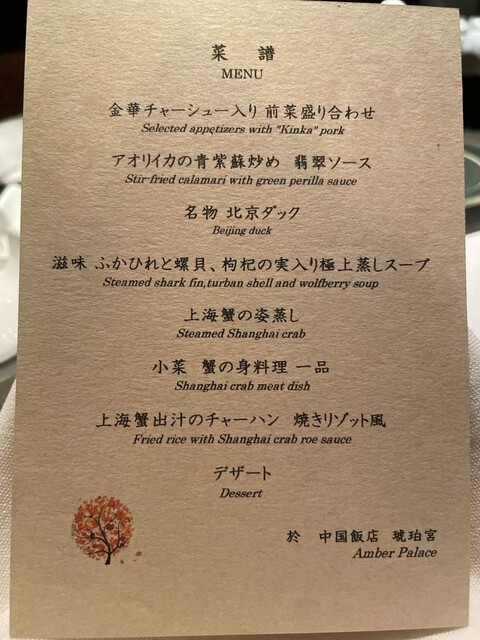 菜 譜
MENU
金華チャーシュー入り 前菜盛り合わせ
Selected appetizers with "Kinka" pork
アオリイカの青紫蘇炒め 翡翠ソース
Stir-fried calamari with green perilla sauce
名物 北京ダック
Beijing duck
滋味 ふかひれと螺貝、枸杞の実入り極上蒸しスープ
Steamed shark fin,turban shell and wolfberry soup
上海蟹の姿蒸し
Steamed Shanghai crab
小菜 蟹の身料理 一品
Shanghai crab meat dish
上海蟹出汁のチャーハン 焼きリゾット風
Fried rice with Shanghai crab roe sauce
デザート
Dessert
於 中国飯店 琥珀宮
Amber Palace